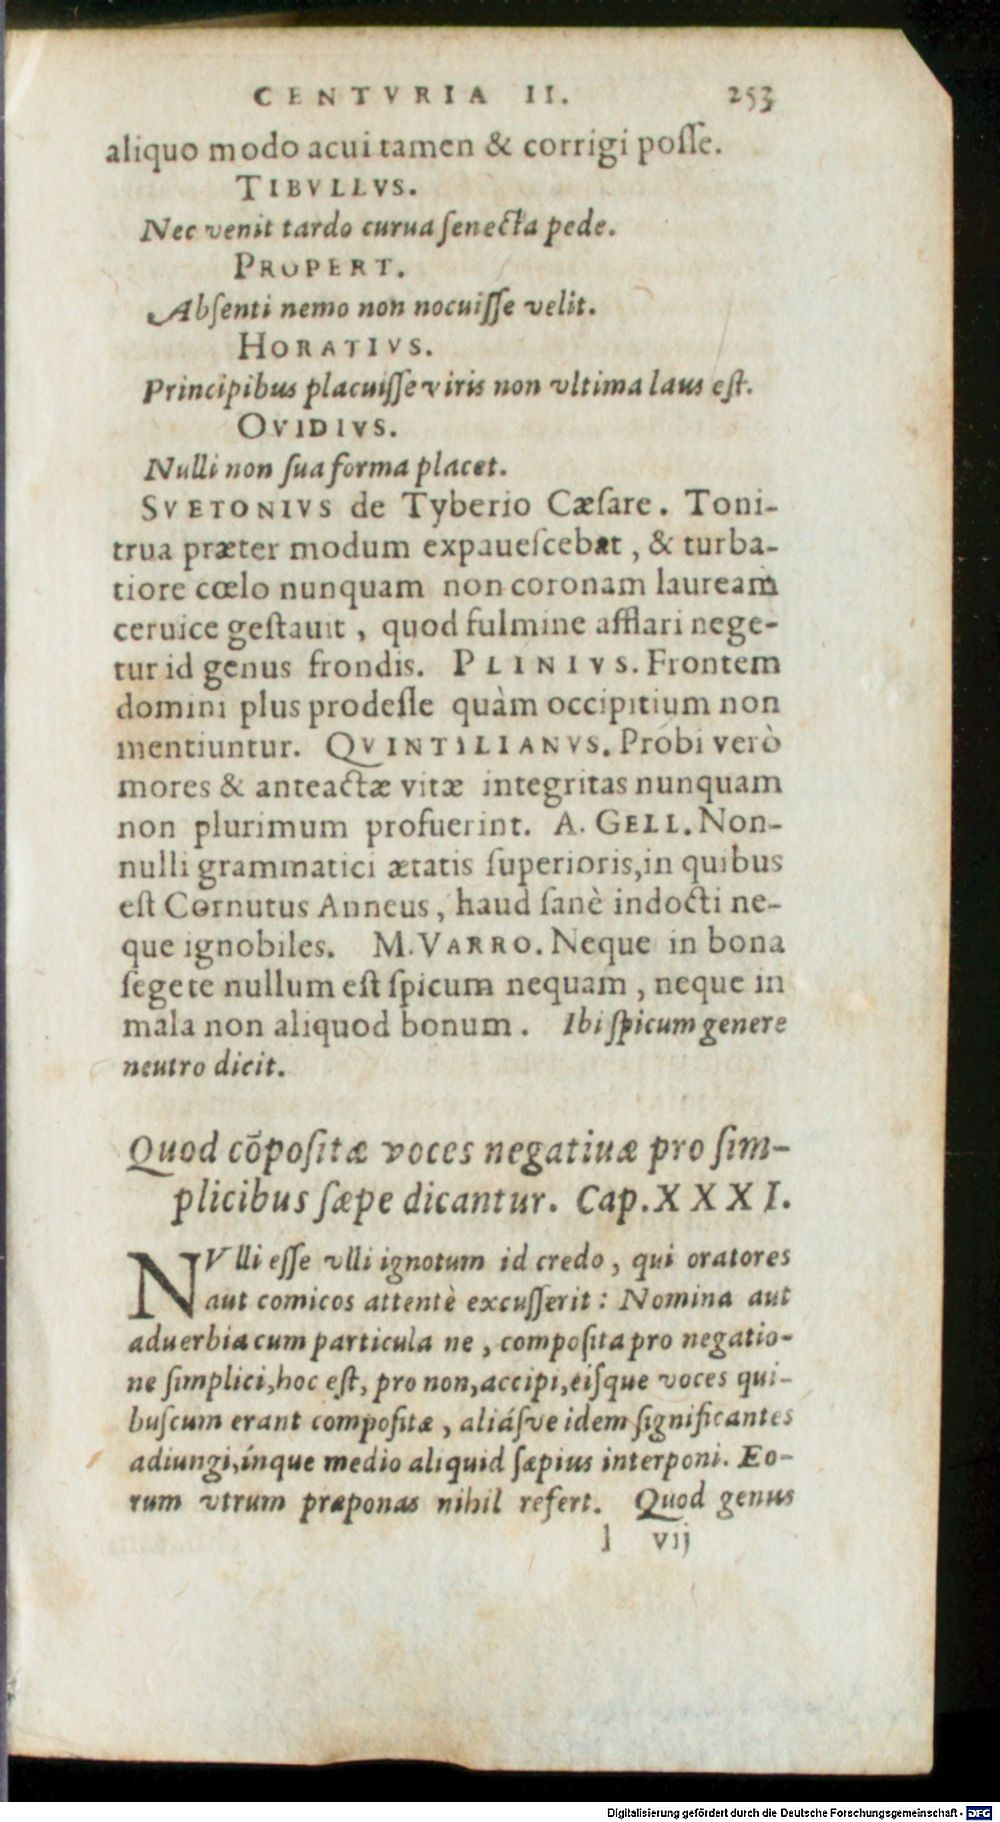 CENTVRIA II. 253
aliquo modo acui tamen & corrigi poſſe.
TIBVLLVS.
Nec venit tardo curua ſenecta pede.
PROPERT.
Abſenti nemo non nocuiſſe velit.
HORATIVS.
Principibus placuiſſe viris non vltima laus eſt.
OVIDIVS.
Nulli non ſua forma placet.
SVETONIVS de Tyberio Cæſare. Toni-
trua præter modum expaueſcebat, & turba-
tiore cœlo nunquam non coronam lauream
ceruice geſtauit, quod fulmine afflari nege-
tur id genus frondis. PLINIVS. Frontem
domini plus prodeſſe quàm occipitium non
mentiuntur. QVINTILIANVS. Probi verò
mores & anteactæ vitæ integritas nunquam
non plurimum profuerint. A. GELL. Non-
nulli grammatici ætatis ſuperioris, in quibus
eſt Cornutus Anneus, haud ſanè indocti ne-
que ignobiles. M. VARRO. Neque in bona
ſegete nullum eſt ſpicum nequam, neque in
mala non aliquod bonum. Ibi ſpicum genere
neutro dicit.
Quod cōpoſitæ voces negatiuæ pro ſim-
plicibus ſæpe dicantur. Cap. XXXI.
NVlli eſſe vlli ignotum id credo, qui oratores
aut comicos attentè excuſſerit: Nomina aut
aduerbia cum particula ne, compoſita pro negatio-
ne ſimplici, hoc eſt, pro non, accipi, eiſque voces qui-
buſcum erant compoſitæ, aliáſve idem ſignificantes
adiungi, ínque medio aliquid ſæpius interponi. Eo-
rum vtrum præponas nihil refert. Quod genus
l vij
Digitalisierung gefördert durch die Deutsche Forschungsgemeinschaft - DFG